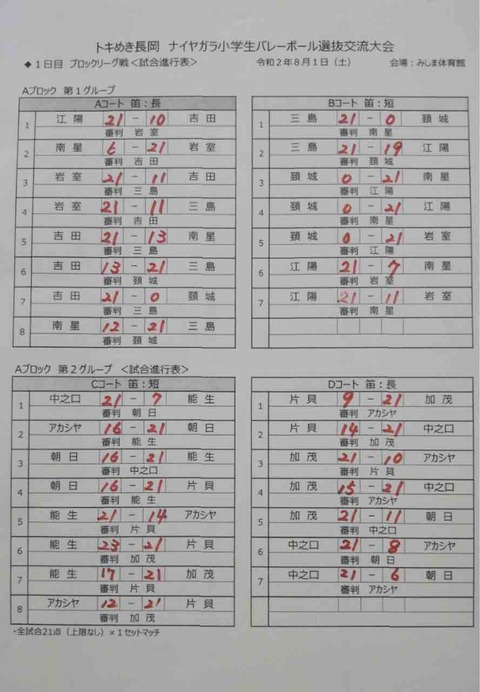 トキめき長岡 ナイヤガラ小学生バレーボール選抜交流大会
◆1日目 ブロックリーグ戦<試合進行表> 令和2年8月1日(土) 会場:みしま体育館
Aブロック 第1グループ
Aコート 笛:長
1 江陽 21 - 10 吉田
審判 岩室
2 南星 6 - 21 岩室
審判 吉田
3 岩室 21 - 11 吉田
審判 三島
4 岩室 21 - 11 三島
審判 吉田
5 吉田 21 - 13 南星
審判 三島
6 吉田 13 - 21 三島
審判 頚城
7 吉田 21 - 0 頚城
審判 三島
8 南星 12 - 21 三島
審判 頚城
Bコート 笛:短
1 三島 21 - 0 頚城
審判 南星
2 三島 21 - 19 江陽
審判 頚城
3 頚城 0 - 21 南星
審判 江陽
4 頚城 0 - 21 江陽
審判 南星
5 頚城 0 - 21 岩室
審判 江陽
6 江陽 21 - 7 南星
審判 岩室
7 江陽 21 - 11 岩室
審判 南星
Aブロック 第2グループ <試合進行表>
Cコート 笛:短
1 中之口 21 - 7 能生
審判 朝日
2 アカシヤ 16 - 21 朝日
審判 能生
3 朝日 16 - 21 能生
審判 中之口
4 朝日 16 - 21 片貝
審判 能生
5 能生 21 - 14 アカシヤ
審判 片貝
6 能生 23 - 21 片貝
審判 加茂
7 能生 17 - 21 加茂
審判 片貝
8 アカシヤ 12 - 21 片貝
審判 加茂
Dコート 笛:長
1 片貝 9 - 21 加茂
審判 アカシヤ
2 片貝 14 - 21 中之口
審判 加茂
3 加茂 21 - 10 アカシヤ
審判 片貝
4 加茂 15 - 21 中之口
審判 アカシヤ
5 加茂 21 - 11 朝日
審判 中之口
6 中之口 21 - 8 アカシヤ
審判 朝日
7 中之口 21 - 6 朝日
審判 アカシヤ
・全試合21点(上限なし)×1セットマッチ